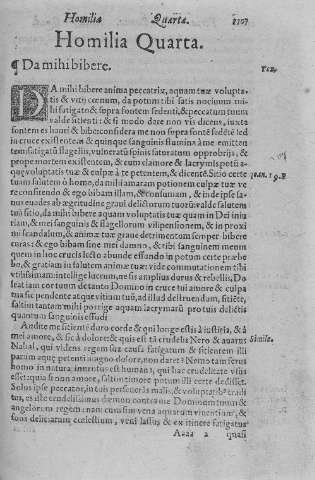 Homilia Quarta. 1107
Homilia Quarta.
¶ Da mihi bibere.
DA mihi bibere anima peccatrix, aquam tuæ volupta-
tis & vitij cœnum, da potum tibi satis nocivum mi-
hi fatigato & supra fontem sedenti, & peccatum tuum
valde sitienti: & si modo dare non vis dicens, iuxta
fontem es hauri & bibe: considera me non supra fontē sedētē sed
in cruce existentē & quinque sanguinis flumina à me emitten
tem fatigatū flagellis, vulneratū spinis saturatum opprobrijs, &
prope mortem existentem, & cum clamore & lacrymis
aquę voluptatis tuæ & culpæ à te petentem, & dicentē. Sitio certe
tuam salutem ô homo, da mihi amaram potionem culpæ tuæ ve
re confitendo & ego bibam illam, & consumam, & in
nus euades ab ægritudine graui delictorum tuorū valde salutem
tuā sitio, da mihi bibere aquam voluptatis tuæ quam in Dei iniu
riam, & mei sanguinis & flagellorum vilipensionem, & in proxi
mi scandalum, & animæ tuæ graue detrimentum semper bibere
curas: & ego bibam sine mei damno, & tibi sanguinem meum
quem in hoc crucis lecto abunde effando in potum certe præbe
bo, & gratiam in salutem animæ tuæ vide commutationem tibi
vtilissimam: intellige lucrum, ne sis amplius durus & rebellis. Da
seat iam cor tuum de tanto Domino in cruce tui amore & culpa
tua sic pendente atque vitiam tuā, ad illud destruendum, sitiēte,
saltim tantam mihi porrige aquam lacrymarū pro tuis delictis
quantum sanguinis effudi
Audite me sitientē duro corde & qui longe estis à iustitia, & à
mei amore, & sic à dolore: & quis est tā crudelis Nero & auarus
Nabal, qui videns regem suū causa fatigatum & sitientem illi
parum aquę petenti magno dolore, non daret? Nemo tam ferus
homo in natura inventus est humana, qui hac crudelitate visus
esset: quia si non amore, saltim timore potum illi certe dedisset.
Solus ipse peccator, in tuis personæ malis, & voluptatibꝰ crudi
tus, es iste crudelissimus dæmon contra me Dominum tuum &
angelorum regem: nam cum sim vena aquarum viuentium, &
fons deliciarum cœlestium, veni lassus & ex itinere fatigatus
Aaaa 2 quasi
Tex.
Joan. 19. B
Simile.